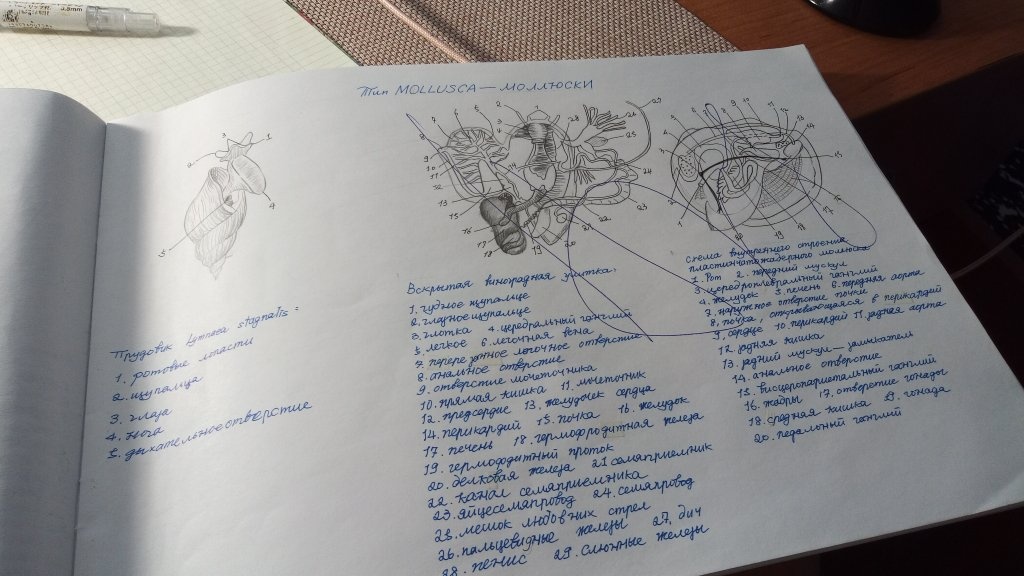 Тип MOLLUSCA — МОЛЛЮСКИ
Прудовик Lymnaea stagnalis:
1. ротовые лопасти
2. щупальца
3. глаза
4. нога
5. дыхательное отверстие
Вскрытая виноградная улитка.
1. губное щупальце
2. глазное щупальце
3. глотка 4. церебральный ганглий
5. легкое 6. легочная вена
7. перерезанное легочное отверстие
8. анальное отверстие
9. отверстие мочеточника
10. прямая кишка 11. мочеточник
12. предсердие 13. желудочек сердца
14. перикардий 15. почка 16. желудок
17. печень 18. гермофродитная железа
19. гермофодитный проток
20. белковая железа 21. семяприемник
22. канал семяприемника
23. яйцесемяпровод 24. семяпровод
25. мешок любовных стрел
26. пальцевидные железы 27. бич
28. пенис 29. слюнные железы
Схема внутреннего строения
пластинчатожаберного моллюска
1. Рот 2. передний мускул
3. цередроплевральный ганглий
4. желудок 5. печень 6. передняя аорта
7. наружное отверстие почки
8. почка, открывающаяся в перикардий
9. сердце 10. перикардий 11. задняя аорта
12. задняя кишка
13. задний мускул — замыкатель
14. анальное отверстие
15. висцеропариетальный ганглий
16. жабры 17. отверстие гонады
18. средняя кишка 19. гонада
20. педальный ганглий